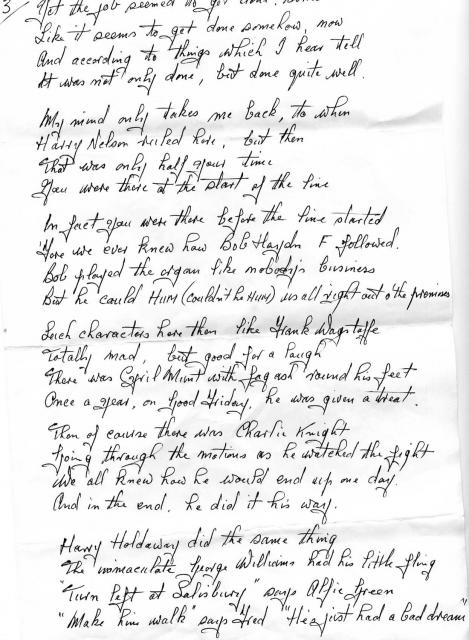 3/ Yet the job seemed to get done.
Like it seems to get done somehow, now
And according to things which I hear tell
It was not only done, but done quite well.
My mind only takes me back, to when
Harry Nelson ruled here, but then
That was only half your time
You were there at the start of the line
In fact you were there before the line started
'Fore we ever knew how Bob Haydn F followed.
Bob played the organ like nobodys business
But he could HUM (couldn't he HUM) us all right out o' the premises
Such characters here then like Frank Wagstaffe
Totally mad, but good for a laugh
There was Cyril Munt with fag ash 'round his feet
Once a year, on Good Friday, he was given a treat.
Then of course there was Charlie Knight
Going through the motions as he watched the fight
We all knew how he would end up one day.
And in the end, he did it his way.
Harry Holdaway did the same thing
The immaculate George Williams had his little fling
"Turn left at Salisbury" says Alfie Green
"Make him walk" says Fred "He's just had a bad dream"